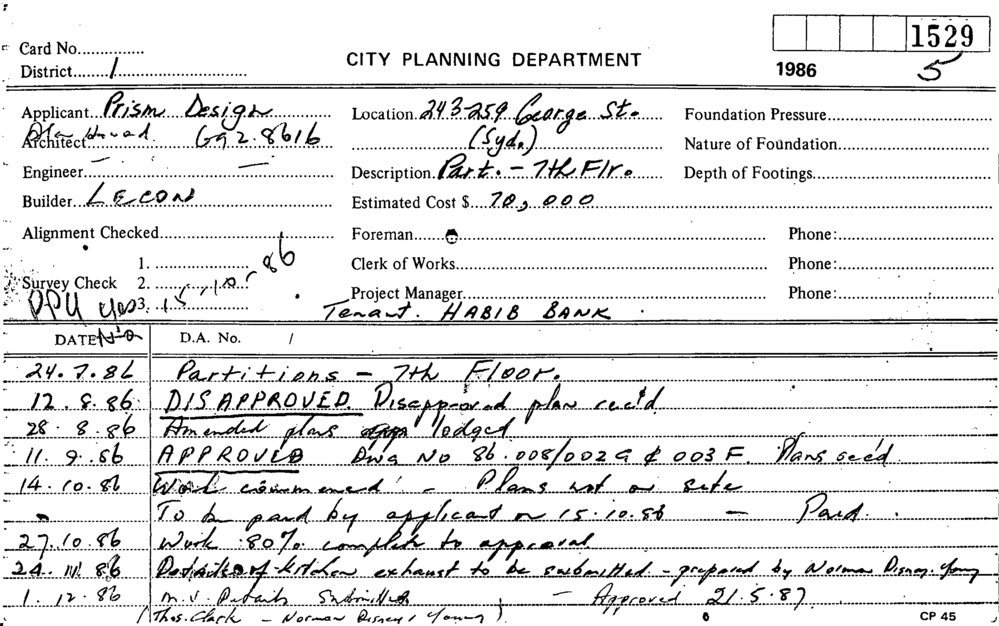 1529
Card No...............
CITY PLANNING DEPARTMENT
1986 5
District 1
Applicant Prism Design
Location 243-259 George St.
Foundation Pressure
Architect 692.8616
(Syd.)
Nature of Foundation
Engineer — —
Description Part. - 7th Flr.
Depth of Footings
Builder LECON
Estimated Cost $ 70,000
Alignment Checked
Foreman
Phone:
1.
Clerk of Works
Phone:
Survey Check 2.
15.10.86
3.
Project Manager
Phone:
Tenant. HABIB BANK.
DATE
D.A. No. /
24.7.86 Partitions - 7th Floor.
12.8.86 DISAPPROVED. Disapproved plan rec'd
28.8.86 Amended plans lodged
11.9.86 APPROVED Dwg No 86.008/002G & 003F. Plans rec'd.
14.10.86 Work commenced - Plans not on site
To be paid by applicant on 15.10.86 - Paid.
27.10.86 Work 80% complete to approval
24.11.86 Details of kitchen exhaust to be submitted - prepared by Norman Disney. Young
1.12.86 M.V. Details Submitted - Approved 21.5.87
(Thos. Clark - Norman Disney & Young)
6 CP 45